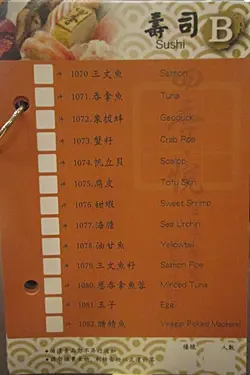 壽司
Sushi
B
1070.三文魚 Salmon
1071.吞拿魚 Tuna
1072.象拔蚌 Geoduck
1073.蟹籽 Crab Roe
1074.帆立貝 Scallop
1075.腐皮 Tofu Skin
1076.甜蝦 Sweet Shrimp
1077.海膽 Sea Urchin
1078.油甘魚 Yellowtail
1079.三文魚籽 Salmon Roe
1080.葱吞拿魚蓉 Minced Tuna
1081.玉子 Egg
1082.醋鯖魚 Vinegar Pickled Mackerel
檯號 人數